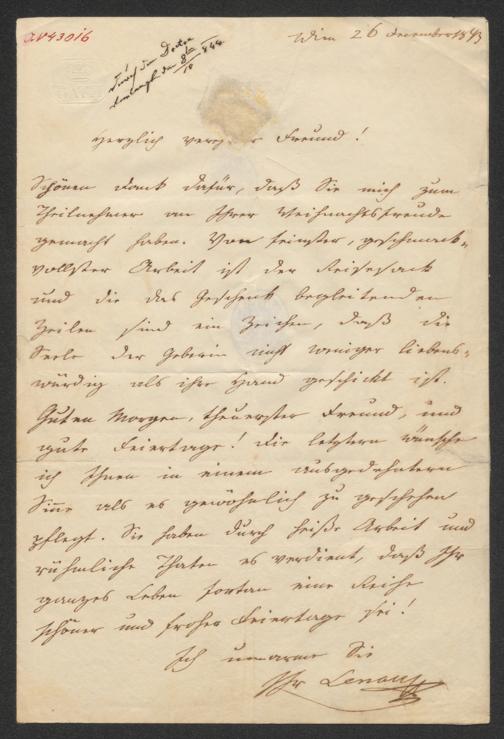 AV43016
Wien 26 December 1843
Durch den Doctor
den 8ten
10 844
Herzlich Freund!
Schönen Dank dafür, daß Sie mich zum
Theilnehmer an Ihrer Weihnachtsfreude
gemacht haben. Von feinster, geschmack-
vollster Arbeit ist der Reisesack
und die das Geschenk begleitenden
Zeilen sind ein Zeichen, daß die
Seele der Geberin nicht weniger liebens-
würdig als ihre Hand geschickt ist.
Guten Morgen, theuerster Freund, und
gute Feiertage! Die letztern wünsche
ich Ihnen in einem ausgedehntern
Sinne als es gewöhnlich zu geschehen
pflegt. Sie haben durch heiße Arbeit und
rühmliche Thaten es verdient, daß Ihr
ganzes Leben fortan eine Reihe
schöner und froher Feiertage sei!
Ich umarme Sie
Ihr Lenau